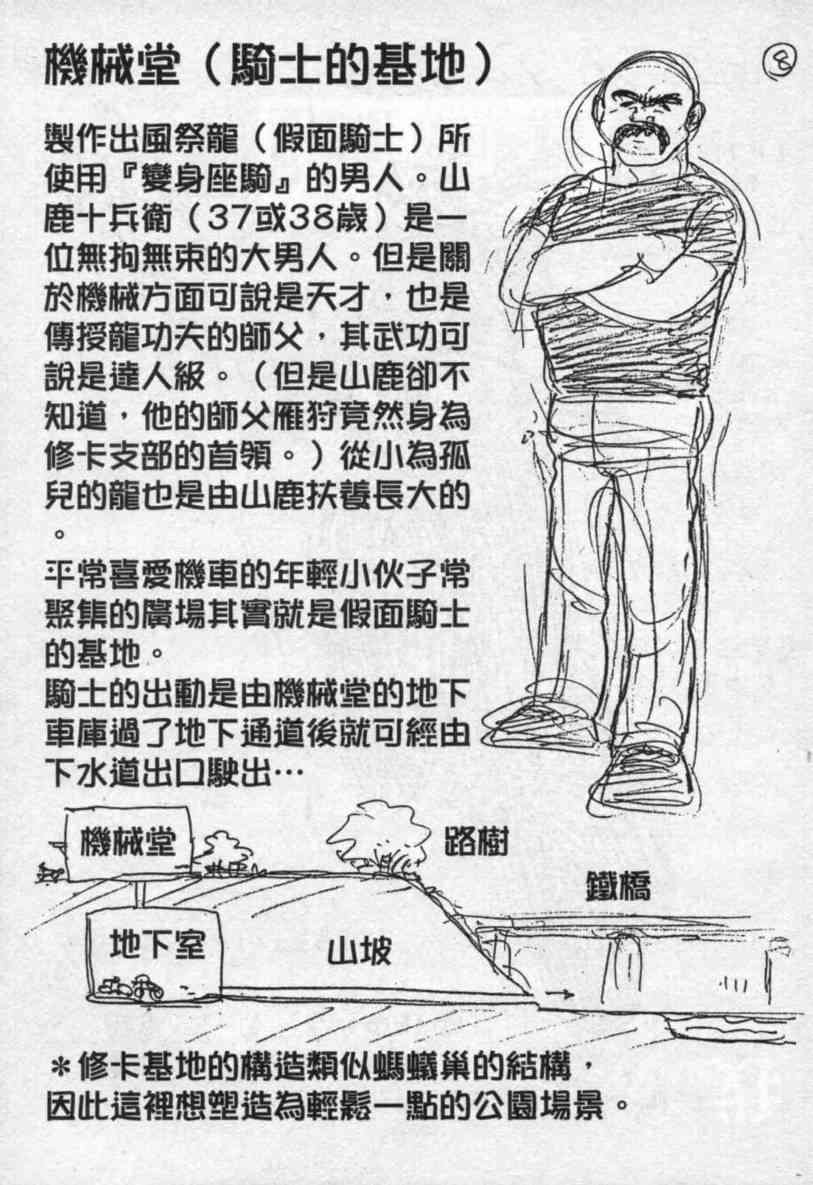 機械堂（騎士的基地）
8
製作出風祭龍（假面騎士）所
使用『變身座騎』的男人。山
鹿十兵衛（37或38歲）是一
位無拘無束的大男人。但是關
於機械方面可說是天才，也是
傳授龍功夫的師父，其武功可
說是達人級。（但是山鹿卻不
知道，他的師父雁狩竟然身為
修卡支部的首領。）從小為孤
兒的龍也是由山鹿扶養長大的
。
平常喜愛機車的年輕小伙子常
聚集的廣場其實就是假面騎士
的基地。
騎士的出動是由機械堂的地下
車庫過了地下通道後就可經由
下水道出口駛出…
機械堂
路樹
鐵橋
地下室
山坡
＊修卡基地的構造類似螞蟻巢的結構，
因此這裡想塑造為輕鬆一點的公園場景。